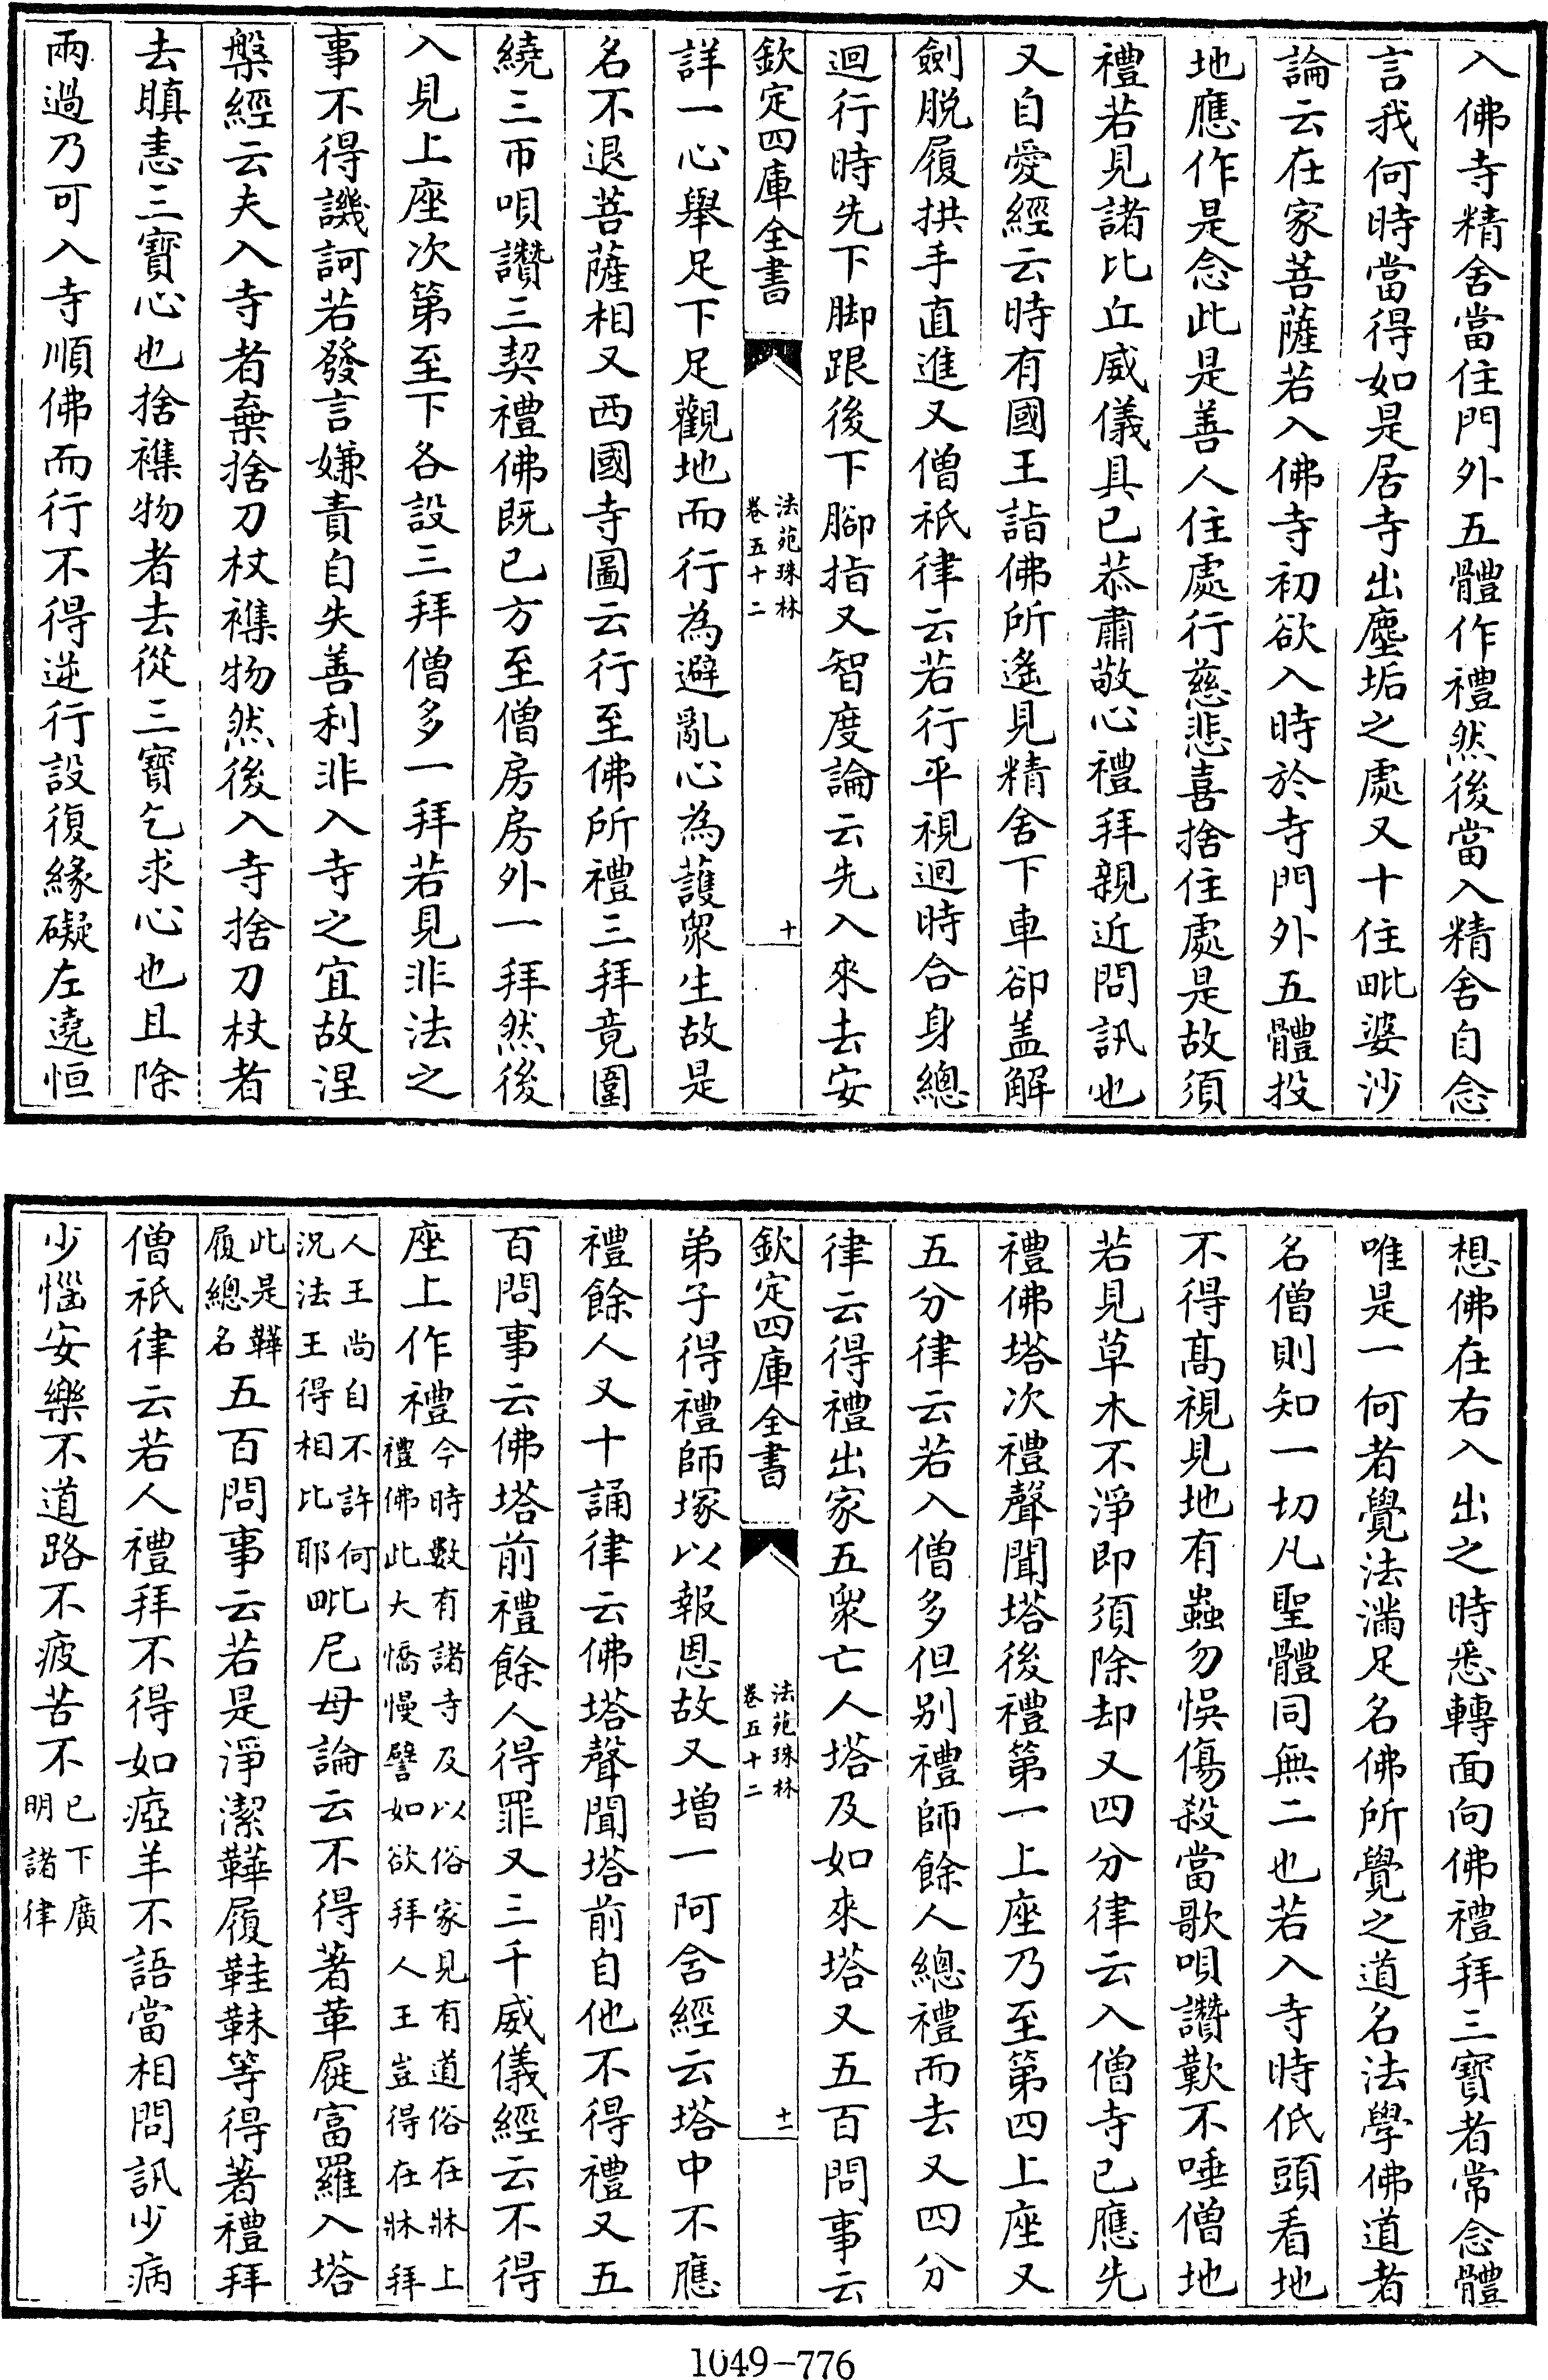 入佛寺精舍當住門外五體作禮然後當入精舍自念
言我何時當得如是居寺出塵垢之處又十住毗婆沙
論云在家菩薩若入佛寺初欲入時於寺門外五體投
地應作是念此是善人住處行慈悲喜捨住處是故須
禮若見諸比丘威儀具已恭肅敬心禮拜親近問訊也
又自愛經云時有國王詣佛所遙見精舍下車卻盖解
劍脱履拱手直進又僧祇律云若行平視迴時合身總
迴行時先下脚跟後下腳指又智度論云先入來去安
欽定四庫全書
法苑珠林
卷五十二
十
詳一心舉足下足觀地而行為避亂心為護衆生故是
名不退菩薩相又西國寺圖云行至佛所禮三拜竟圍
繞三帀唄讚三契禮佛既已方至僧房房外一拜然後
入見上座次第至下各設三拜僧多一拜若見非法之
事不得譏訶若發言嫌責自失善利非入寺之宜故涅
槃經云夫入寺者棄捨刀杖襍物然後入寺捨刀杖者
去瞋恚三寳心也捨襍物者去從三寳乞求心也且除
兩過乃可入寺順佛而行不得逆行設復緣礙左遶恒
想佛在右入出之時悉轉面向佛禮拜三寳者常念體
唯是一何者覺法滿足名佛所覺之道名法學佛道者
名僧則知一切凡聖體同無二也若入寺時低頭看地
不得髙視見地有蟲勿悞傷殺當歌唄讚歎不唾僧地
若見草木不淨即須除却又四分律云入僧寺已應先
禮佛塔次禮聲聞塔後禮第一上座乃至第四上座又
五分律云若入僧多但别禮師餘人總禮而去又四分
律云得禮出家五衆亡人塔及如來塔又五百問事云
欽定四庫全書
法苑珠林
卷五十二
十一
弟子得禮師塚以報恩故又增一阿含經云塔中不應
禮餘人又十誦律云佛塔聲聞塔前自他不得禮又五
百問事云佛塔前禮餘人得罪又三千威儀經云不得
座上作禮今時數有諸寺及以俗家見有道俗在牀上
禮佛此大憍慢譬如欲拜人王豈得在牀拜
人王尚自不許何
況法王得相比耶毗尼母論云不得著革屣富羅入塔
此是鞾
履總名五百問事云若是淨潔鞾履鞋靺等得著禮拜
僧祇律云若人禮拜不得如瘂羊不語當相問訊少病
少惱安樂不道路不疲苦不已下廣
明諸律
1049-776